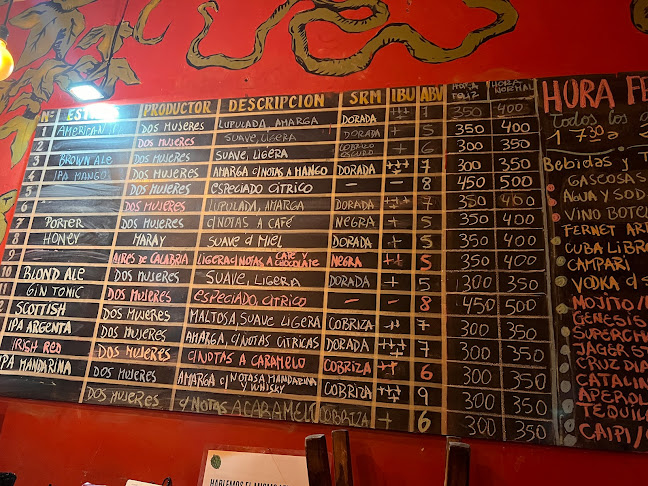 Nº ESTILO PRODUCTOR DESCRIPCION SRM IBU ABV HORA FELIZ HORA NORMAL
1 AMERICAN DOS MUJERES LUPULADA, AMARGA DORADA 350 400
2 DOS MUJERES SUAVE, LIGERA DORADA + 5 350 400
3 BROWN ALE DOS MUJERES SUAVE, LIGERA COBRIZO OSCURO + 6 300 350
4 IPA MANGO DOS MUJERES AMARGA C/NOTAS A MANGO DORADA +++ 7 350 400
5 DOS MUJERES ESPECIADO CITRICO - - 8 450 500
6 DOS MUJERES LUPULADA, AMARGA DORADA 7 350 400
7 PORTER DOS MUJERES C/NOTAS A CAFÉ NEGRA + 5 350 400
8 HONEY HARAY SUAVE d MIEL DORADA + 5 300 350
9 AIRES DE CALABRIA LIGERA C/NOTAS A CAFE Y CHOCOLATE NEGRA ++ 5 350 400
10 BLOND ALE DOS MUJERES SUAVE, LIGERA DORADA + 5 300 350
11 GIN TONIC DOS MUJERES ESPECIADO, CITRICO - - 8 450 500
SCOTTISH DOS MUJERES MALTOSA, SUAVE LIGERA COBRIZA + 7 300 350
IPA ARGENTA DOS MUJERES AMARGA, C/NOTAS CÍTRICAS DORADA +++ 7 300 350
IRISH RED DOS MUJERES C/NOTAS A CARAMELO COBRIZA 6 300 350
IPA MANDARINA DOS MUJERES AMARGA C/NOTAS A MANDARINA Y WHISKY COBRIZA 9 300 350
DOS MUJERES C/NOTAS A CARAMELO COBRIZA + 6 300 350
HORA FE
todos los
1730 a
Bebidas y T
GASCOSAS
AGUA Y SOD
VINO BOTE
FERNET AR
CUBA LIBR
CAMPARI
VODKA d S
MOJITO/
GENESIS
SUPERCH
JAGER ST
CRUZ DIA
CATALIN
APEROL
TEQUIL
CAIPI/
HABLEMOS EL MISMO